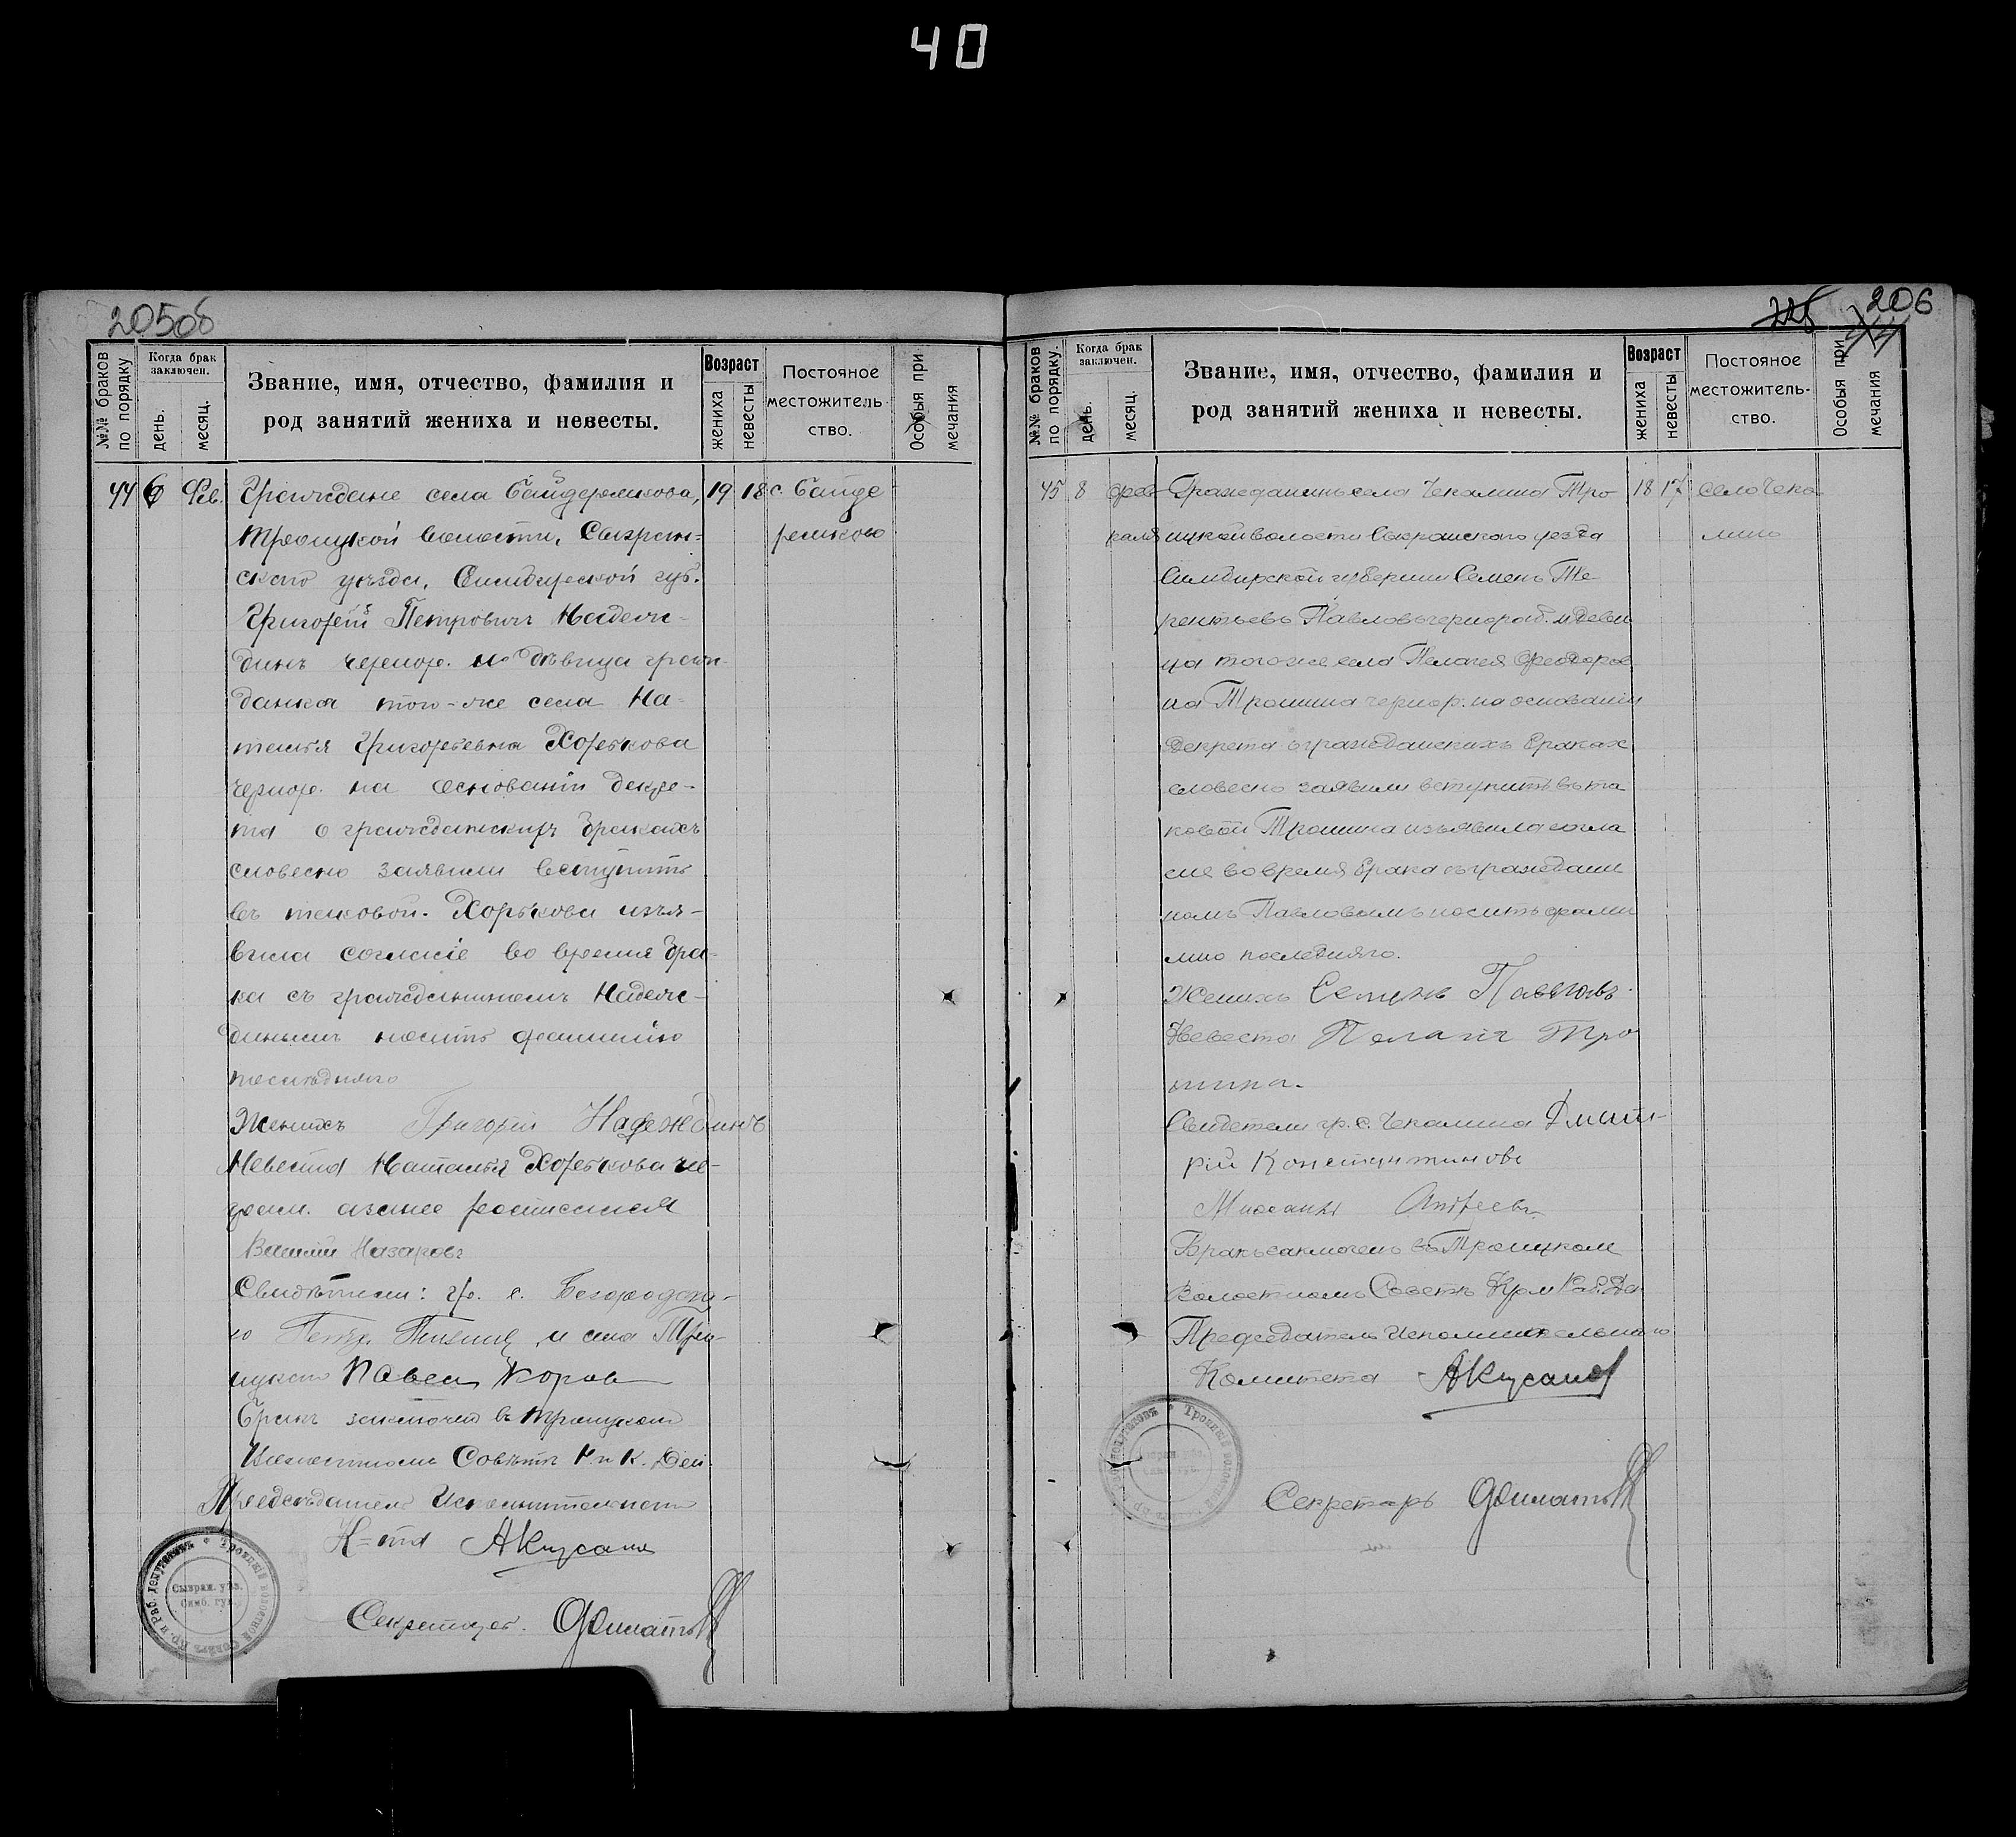 40
205об
№№ браков по порядку
Когда брак заключен.
день.
месяц.
Звание, имя, отчество, фамилия и
род занятий жениха и невесты.
Возраст
жениха
невесты
Постояное
местожитель-
ство.
Особыя при
мечания
44 6 Фев. Граждане села Байдерякова, 19 18 с. Байде
Троицкой волости, Сызран- ряково
скаго уѣзда, Симбирской губ.
Григорий Петрович Надеж-
динъ чернор. и дѣвица граж-
данка того-же села На-
талья Григорьевна Хорькова
чернор. на основанiи декре-
та о гражданских бракахъ
словесно заявили вступить
въ таковой. Хорькова изъя-
вила согласiе во время бра-
ка съ гражданином Надеж-
диным носить фамилiю
послѣдняго
Женихъ Григорiй Надеждинъ
Невеста Наталья Хорькова не-
грам. а за нее росписался
Назаровъ
Свидѣтели: гр. с.
и села Трои-
цкаго Павел
Брак заключен въ Троицком
Волостном Совѣтѣ К. Деп.
Предсѣдатель Исполнительнаго
К-та АКирсанов
Секретарь
Троицкий волостной Совѣтъ кр. и раб. депутатовъ
Сызран. уѣз.
Симб. губ.
206
№№ браков по порядку.
Когда брак заключен.
день.
месяц.
Звание, имя, отчество, фамилия и
род занятий жениха и невесты.
Возраст
жениха
невесты
Постояное
местожитель-
ство.
Особыя при
мечания
45 8 фев- Гражданинъ села Чекалина Тро 18 17 село Чека
раля ицкой волости Сызранского уезда лино
Симбирской губернии Семенъ Те
рентьевъ Павловъ чернораб. и деви
ца того же села Пелагея Феодоров
на Трошина чернор. на основании
декрета о гражданскихъ браках
словесно заявили вступить в та
ковой Трошина изъявила согла
сие во время брака съ граждани
номъ Павловымъ носить фами
лию последняго.
Женихъ Семенъ Павловъ.
Невеста Пелагия Тро
шина.
Свидетели гр. с. Чекалина Дмит-
рiй Константиновъ
Андреевъ
Бракъ заключенъ въ Троицком
Волостномъ Советѣ Крт Раб. Деп
Председатель Исполнительнаго
Комитета АКирсанов
Секретарь